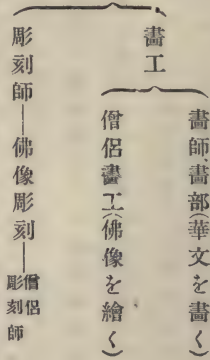 畫工
畫師、畫部(華文を畫く)
僧侶畫工(佛像を繪く)
彫刻師―佛像彫刻―僧侶彫刻師